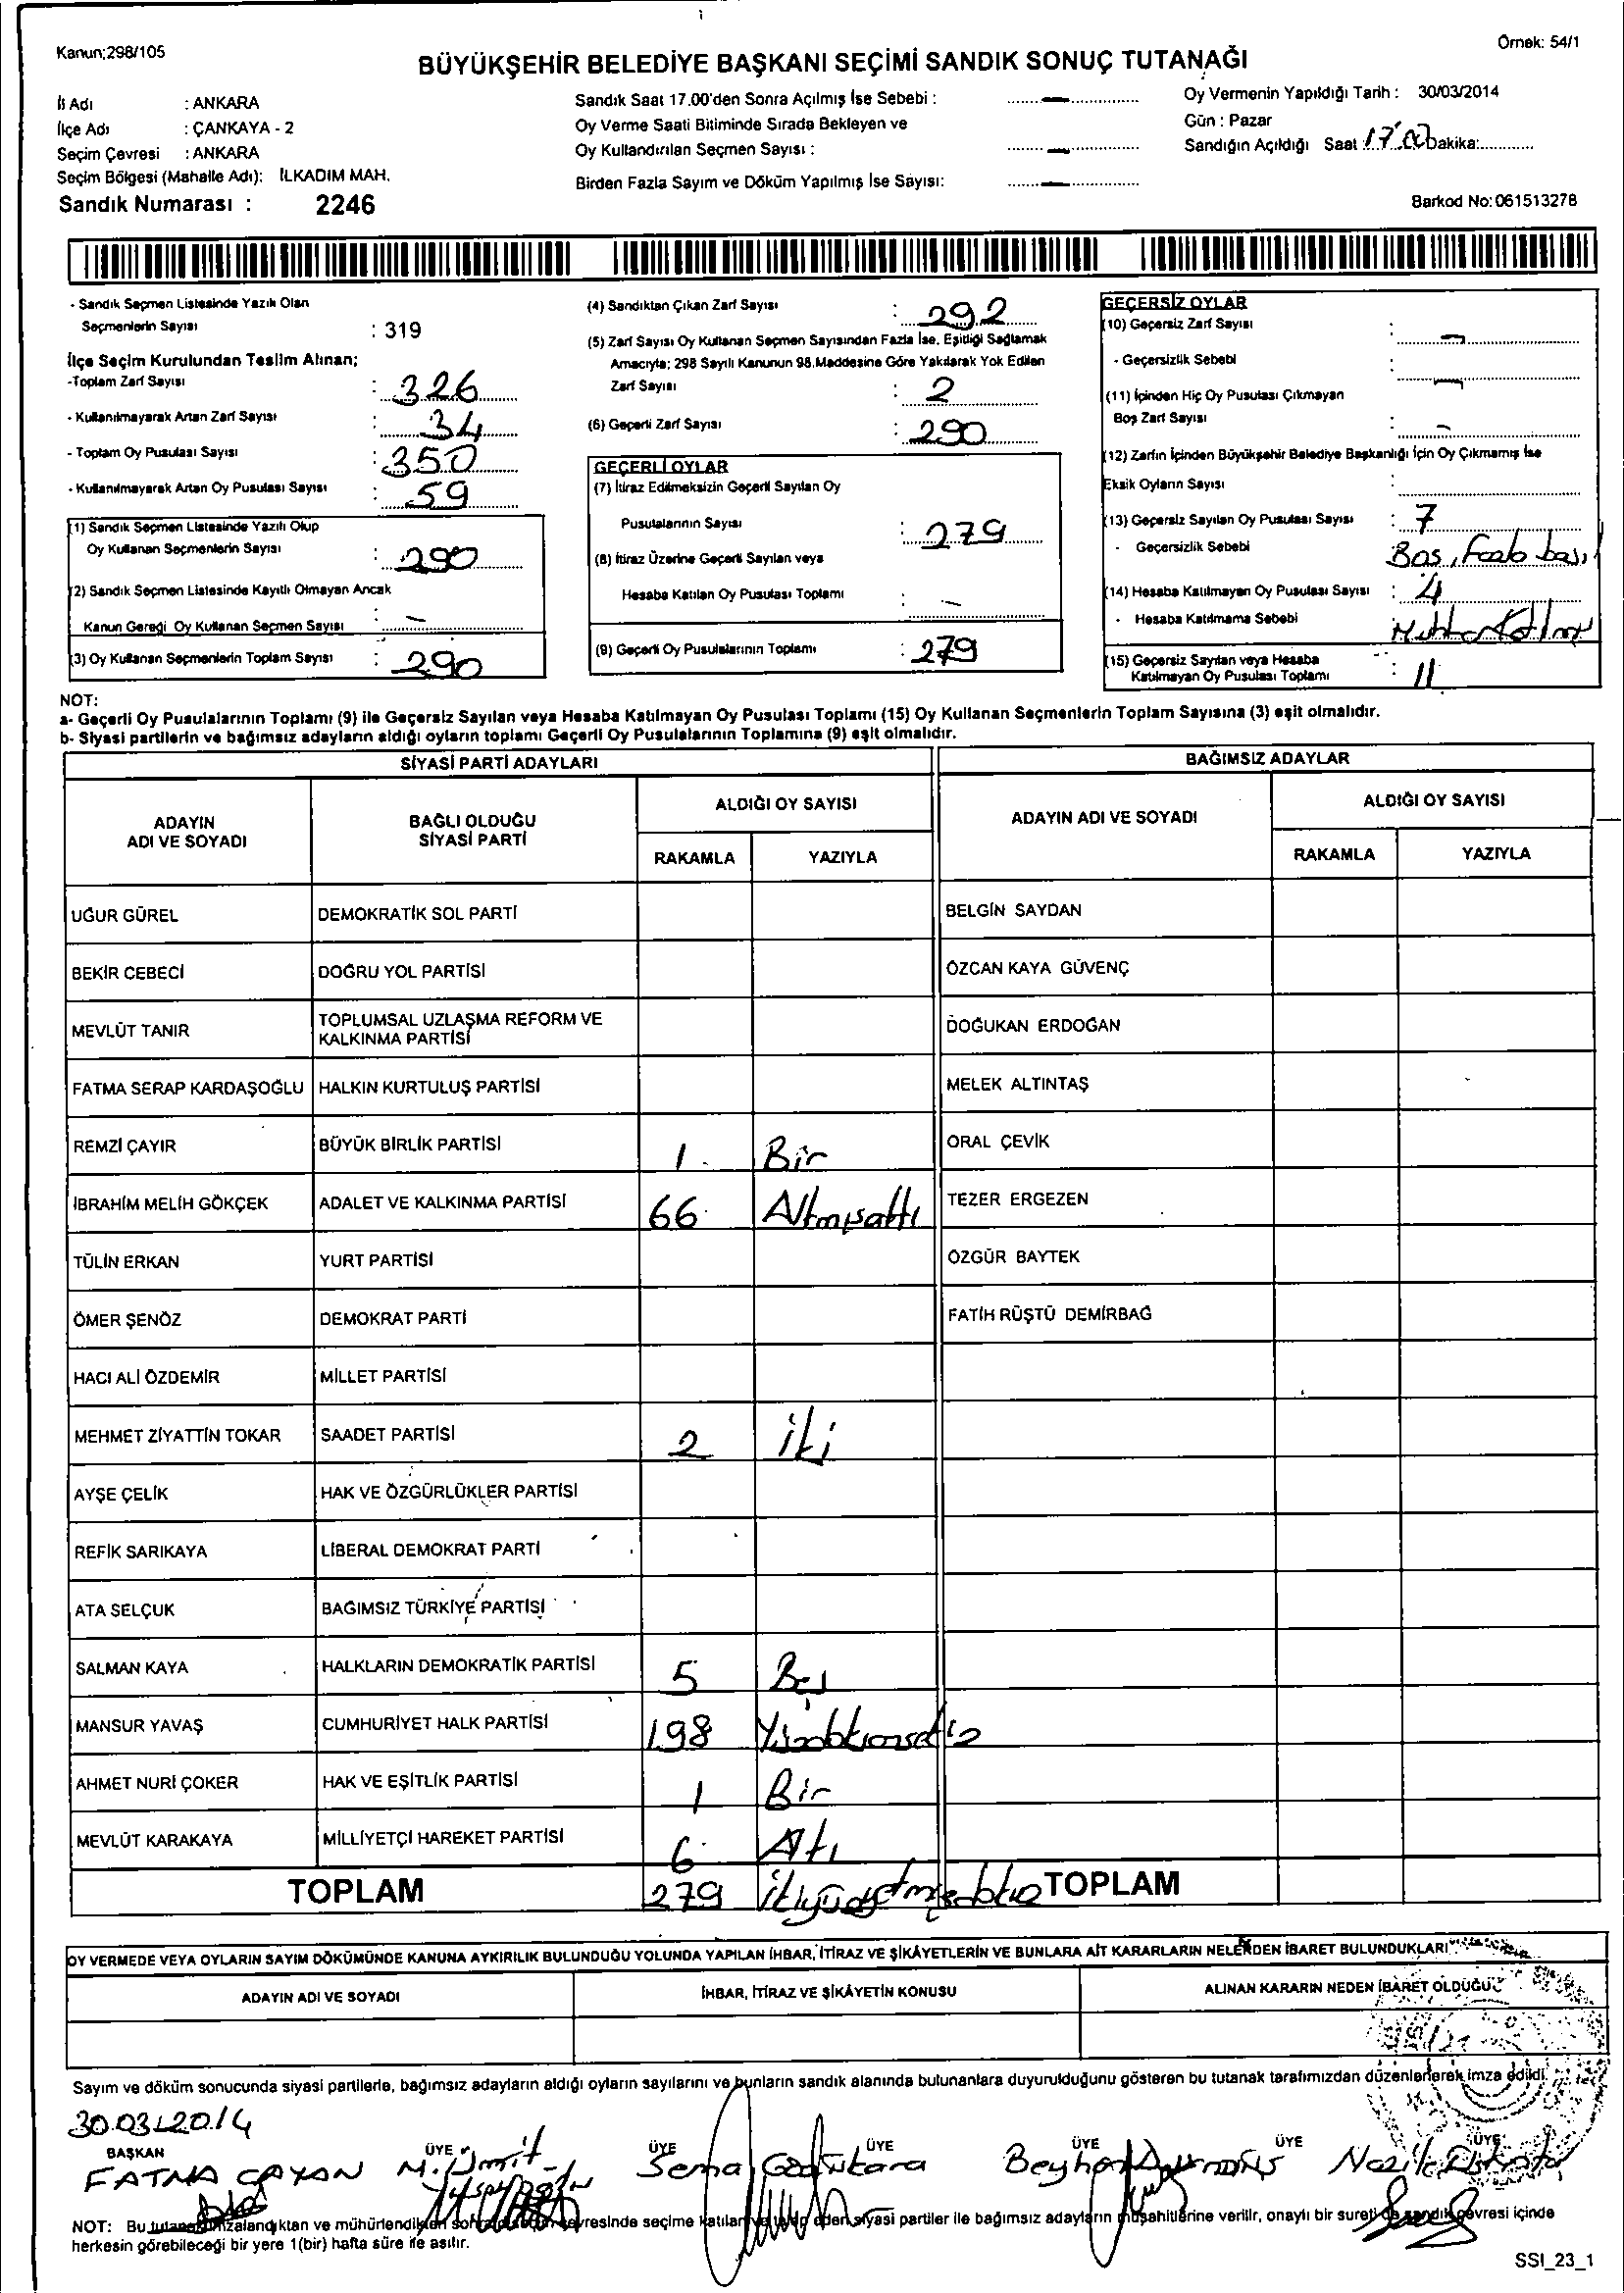 Kanun;298/105
Örnek: 54/1
BÜYÜKŞEHİR BELEDİYE BAŞKANI SEÇİMİ SANDIK SONUÇ TUTANAĞI
İl Adı : ANKARA
İlçe Adı : ÇANKAYA - 2
Seçim Çevresi : ANKARA
Seçim Bölgesi (Mahalle Adı): İLKADIM MAH.
Sandık Numarası : 2246
Sandık Saat 17.00'den Sonra Açılmış İse Sebebi : —
Oy Verme Saati Bitiminde Sırada Bekleyen ve
Oy Kullandırılan Seçmen Sayısı : —
Birden Fazla Sayım ve Döküm Yapılmış İse Sayısı: —
Oy Vermenin Yapıldığı Tarih : 30/03/2014
Gün : Pazar
Sandığın Açıldığı Saat : 17:00 Dakika:
Barkod No:061513278
- Sandık Seçmen Listesinde Yazılı Olan
Seçmenlerin Sayısı : 319
İlçe Seçim Kurulundan Teslim Alınan;
-Toplam Zarf Sayısı : 326
- Kullanılmayarak Artan Zarf Sayısı : 34
- Toplam Oy Pusulası Sayısı : 350
- Kullanılmayarak Artan Oy Pusulası Sayısı : 59
(1) Sandık Seçmen Listesinde Yazılı Olup
Oy Kullanan Seçmenlerin Sayısı : 290
(2) Sandık Seçmen Listesinde Kayıtlı Olmayan Ancak
Kanun Gereği Oy Kullanan Seçmen Sayısı : —
(3) Oy Kullanan Seçmenlerin Toplam Sayısı : 290
(4) Sandıktan Çıkan Zarf Sayısı : 292
(5) Zarf Sayısı Oy Kullanan Seçmen Sayısından Fazla İse, Eşitliği Sağlamak
Amacıyla; 298 Sayılı Kanunun 98.Maddesine Göre Yakılarak Yok Edilen
Zarf Sayısı : 2
(6) Geçerli Zarf Sayısı : 290
GEÇERLİ OYLAR
(7) İtiraz Edilmeksizin Geçerli Sayılan Oy
Pusulalarının Sayısı : 279
(8) İtiraz Üzerine Geçerli Sayılan veya
Hesaba Katılan Oy Pusulası Toplamı : —
(9) Geçerli Oy Pusulalarının Toplamı : 279
GEÇERSİZ OYLAR
(10) Geçersiz Zarf Sayısı : —
- Geçersizlik Sebebi : —
(11) İçinden Hiç Oy Pusulası Çıkmayan
Boş Zarf Sayısı : —
(12) Zarfın İçinden Büyükşehir Belediye Başkanlığı İçin Oy Çıkmamış İse
Eksik Oyların Sayısı :
(13) Geçersiz Sayılan Oy Pusulası Sayısı : 7
- Geçersizlik Sebebi Boş,
(14) Hesaba Katılmayan Oy Pusulası Sayısı : 4
- Hesaba Katılmama Sebebi
(15) Geçersiz Sayılan veya Hesaba
Katılmayan Oy Pusulası Toplamı : 11
NOT:
a- Geçerli Oy Pusulalarının Toplamı (9) ile Geçersiz Sayılan veya Hesaba Katılmayan Oy Pusulası Toplamı (15) Oy Kullanan Seçmenlerin Toplam Sayısına (3) eşit olmalıdır.
b- Siyasi partilerin ve bağımsız adayların aldığı oyların toplamı Geçerli Oy Pusulalarının Toplamına (9) eşit olmalıdır.
SİYASİ PARTİ ADAYLARI BAĞIMSIZ ADAYLAR
ADAYIN ADI VE SOYADI BAĞLI OLDUĞU SİYASİ PARTİ ALDIĞI OY SAYISI ADAYIN ADI VE SOYADI ALDIĞI OY SAYISI
RAKAMLA YAZIYLA RAKAMLA YAZIYLA
UĞUR GÜREL DEMOKRATİK SOL PARTİ BELGİN SAYDAN
BEKİR CEBECİ DOĞRU YOL PARTİSİ ÖZCAN KAYA GÜVENÇ
MEVLÜT TANIR TOPLUMSAL UZLAŞMA REFORM VE KALKINMA PARTİSİ DOĞUKAN ERDOĞAN
FATMA SERAP KARDAŞOĞLU HALKIN KURTULUŞ PARTİSİ MELEK ALTINTAŞ
REMZİ ÇAYIR BÜYÜK BİRLİK PARTİSİ 1 Bir ORAL ÇEVİK
İBRAHİM MELİH GÖKÇEK ADALET VE KALKINMA PARTİSİ 66 Altmışaltı TEZER ERGEZEN
TÜLİN ERKAN YURT PARTİSİ ÖZGÜR BAYTEK
ÖMER ŞENÖZ DEMOKRAT PARTİ FATİH RÜŞTÜ DEMİRBAĞ
HACI ALİ ÖZDEMİR MİLLET PARTİSİ
MEHMET ZİYATTİN TOKAR SAADET PARTİSİ 2 İki
AYŞE ÇELİK HAK VE ÖZGÜRLÜKLER PARTİSİ
REFİK SARIKAYA LİBERAL DEMOKRAT PARTİ
ATA SELÇUK BAĞIMSIZ TÜRKİYE PARTİSİ
SALMAN KAYA HALKLARIN DEMOKRATİK PARTİSİ 5 Beş
MANSUR YAVAŞ CUMHURİYET HALK PARTİSİ 198 Yüzdoksansekiz
AHMET NURİ ÇOKER HAK VE EŞİTLİK PARTİSİ 1 Bir
MEVLÜT KARAKAYA MİLLİYETÇİ HAREKET PARTİSİ 6 Altı
TOPLAM 279 İkiyüzyetmişdokuz TOPLAM
OY VERMEDE VEYA OYLARIN SAYIM DÖKÜMÜNDE KANUNA AYKIRILIK BULUNDUĞU YOLUNDA YAPILAN İHBAR, İTİRAZ VE ŞİKÂYETLERİN VE BUNLARA AİT KARARLARIN NELERDEN İBARET BULUNDUKLARI
ADAYIN ADI VE SOYADI İHBAR, İTİRAZ VE ŞİKÂYETİN KONUSU ALINAN KARARIN NEDEN İBARET OLDUĞU
Sayım ve döküm sonucunda siyasi partilerle, bağımsız adayların aldığı oyların sayılarını ve bunların sandık alanında bulunanlara duyurulduğunu gösteren bu tutanak tarafımızdan düzenlenerek imza edildi.
30.03.2014
BAŞKAN ÜYE ÜYE ÜYE ÜYE ÜYE ÜYE
FATMA ÇAYAN M. Ümit Sema Beyhan Nazik
NOT: Bu tutanak imzalandıktan ve mühürlendikten sonra çevresinde seçime katılan ve takip eden siyasi partiler ile bağımsız adayların müşahitlerine verilir, onaylı bir sureti de sandık çevresi içinde
herkesin görebileceği bir yere 1(bir) hafta süre ile asılır.
SSI_23_1